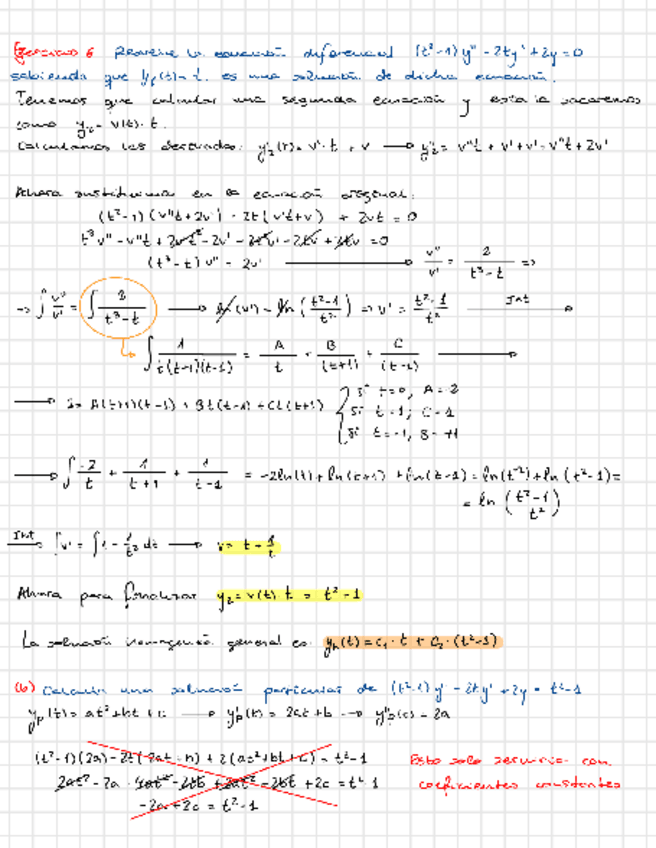 Ejercicio 6 Resuelve la ecuación diferencial (t²-1)y'' - 2ty' + 2y = 0
sabiendo que y₁(t) = t es una solución de dicha ecuación.
Tenemos que calcular una segunda ecuación y esta la sacaremos
como y₂ = v(t)·t.
Calculamos las derivadas: y₂'(t) = v'·t + v → y₂'' = v''t + v' + v' = v''t + 2v'
Ahora sustituimos en la ecuación original:
(t²-1)(v''t + 2v') - 2t(v't + v) + 2vt = 0
t³v'' - v''t + 2v't² - 2v' - 2t²v' - 2tv + 2tv = 0
(t³-t)v'' = 2v' → v''/v' = 2/(t³-t) ⇒
→ ∫ v''/v' = ∫ 2/(t³-t) → ln(v') = ln((t²-1)/t²) ⇒ v' = (t²-1)/t² Int →
∫ 1/(t(t+1)(t-1)) = A/t + B/(t+1) + C/(t-1) →
→ 2 = A(t+1)(t-1) + Bt(t-1) + Ct(t+1) { Si t=0, A=-2
Si t=1; C=1
Si t=-1, B=+1
→ ∫ -2/t + 1/(t+1) + 1/(t-1) = -2ln(t) + ln(t+1) + ln(t-1) = ln(t⁻²) + ln(t²-1) =
= ln((t²-1)/t²)
Int → ∫v' = ∫ 1 - 1/t² dt → v = t + 1/t
Ahora para finalizar y₂ = v(t) t = t² - 1
La solución homogenea general es: yₕ(t) = c₁·t + c₂·(t²-1)
(b) Calcular una solución particular de (t²-1)y' - 2ty' + 2y = t²-1
yₚ(t) = at² + bt + c → yₚ'(t) = 2at + b → yₚ''(t) = 2a
(t²-1)(2a) - 2t(2at + b) + 2(at² + bt + c) = t²-1
2at² - 2a - 4at² - 2tb + 2at² - 2bt + 2c = t²-1
-2a + 2c = t²-1
Esto solo con
coeficientes constantes